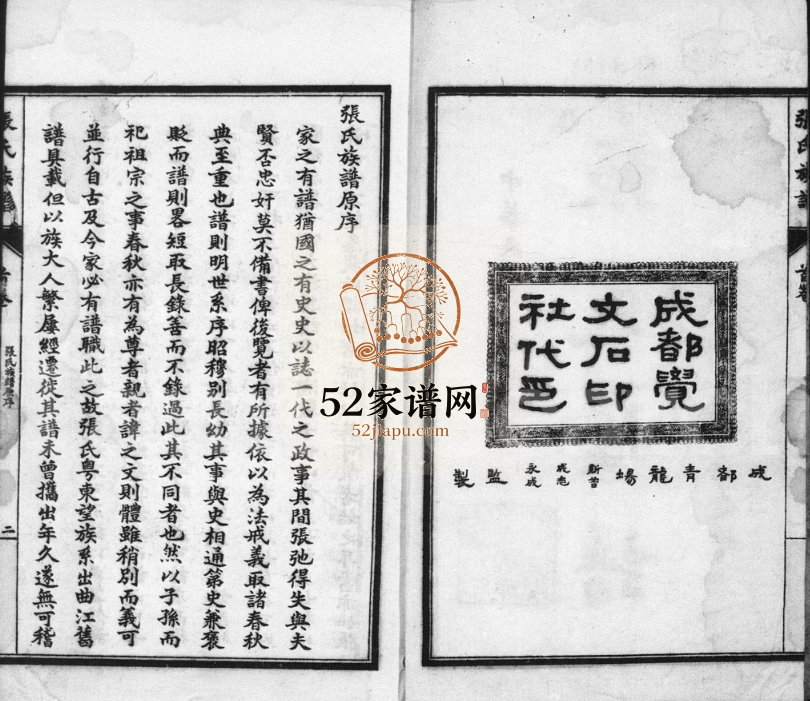 成都覺
文石印
社代邑
成都青龍場
監製
張氏族譜原序
家之有譜猶國之有史史以誌一代之政事其間張弛得失與夫
賢否忠奸莫不備書俾後覽者有所據依以為法戒義取諸春秋
典至重也譜則明世系序昭穆別長幼其事與史相通第史兼褒
貶而譜則畧短取長錄善而不錄過此其不同者也然以子孫而
祀祖宗之事春秋亦有為尊者親者諱之文則體雖稍別而義可
並行自古及今家必有譜職此之故張氏粵東望族系出曲江舊
譜具載但以族大人繁屢經遷徙其譜未曾攜出年久遂無可稽
張氏族譜
首卷
張氏族譜原序
二
52家谱网
52jiapu.com